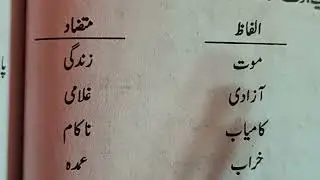 الفاظ متضاد
موت زندگی
آزادی غلامی
کامیاب ناکام
خراب عمدہ